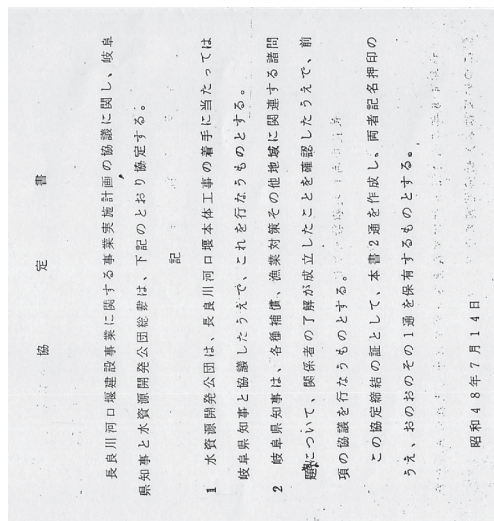 協定書
長良川河口堰建設事業に関する事業実施計画の協議に関し、岐阜
県知事と水資源開発公団総裁は、下記のとおり協定する。
記
1 水資源開発公団は、長良川河口堰本体工事の着手に当たっては
岐阜県知事と協議したうえで、これを行なうものとする。
2 岐阜県知事は、各種補償、漁業対策その他地域に関連する諸問
題について、関係者の了解が成立したことを確認したうえで、前
項の協議を行なうものとする。
この協定締結の証として、本書2通を作成し、両者記名押印の
うえ、おのおのその1通を保有するものとする。
昭和48年7月14日